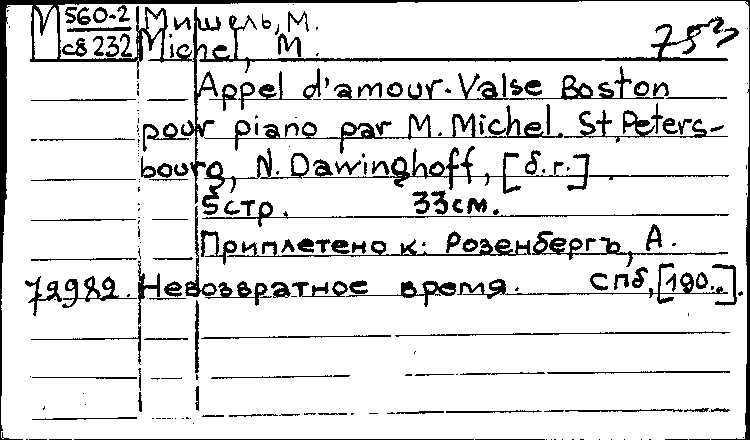 М 560-2 Мишель, М.
с8 232 Michel, M. 753
Appel d'amour. Valse Boston
pour piano par M. Michel. St. Peters-
bourg, N. Dawinghoff, [б.г.].
5 стр. 33 см.
Приплетено к: Розенбергъ, А.
72982. Невозвратное время. СПб, [190..].